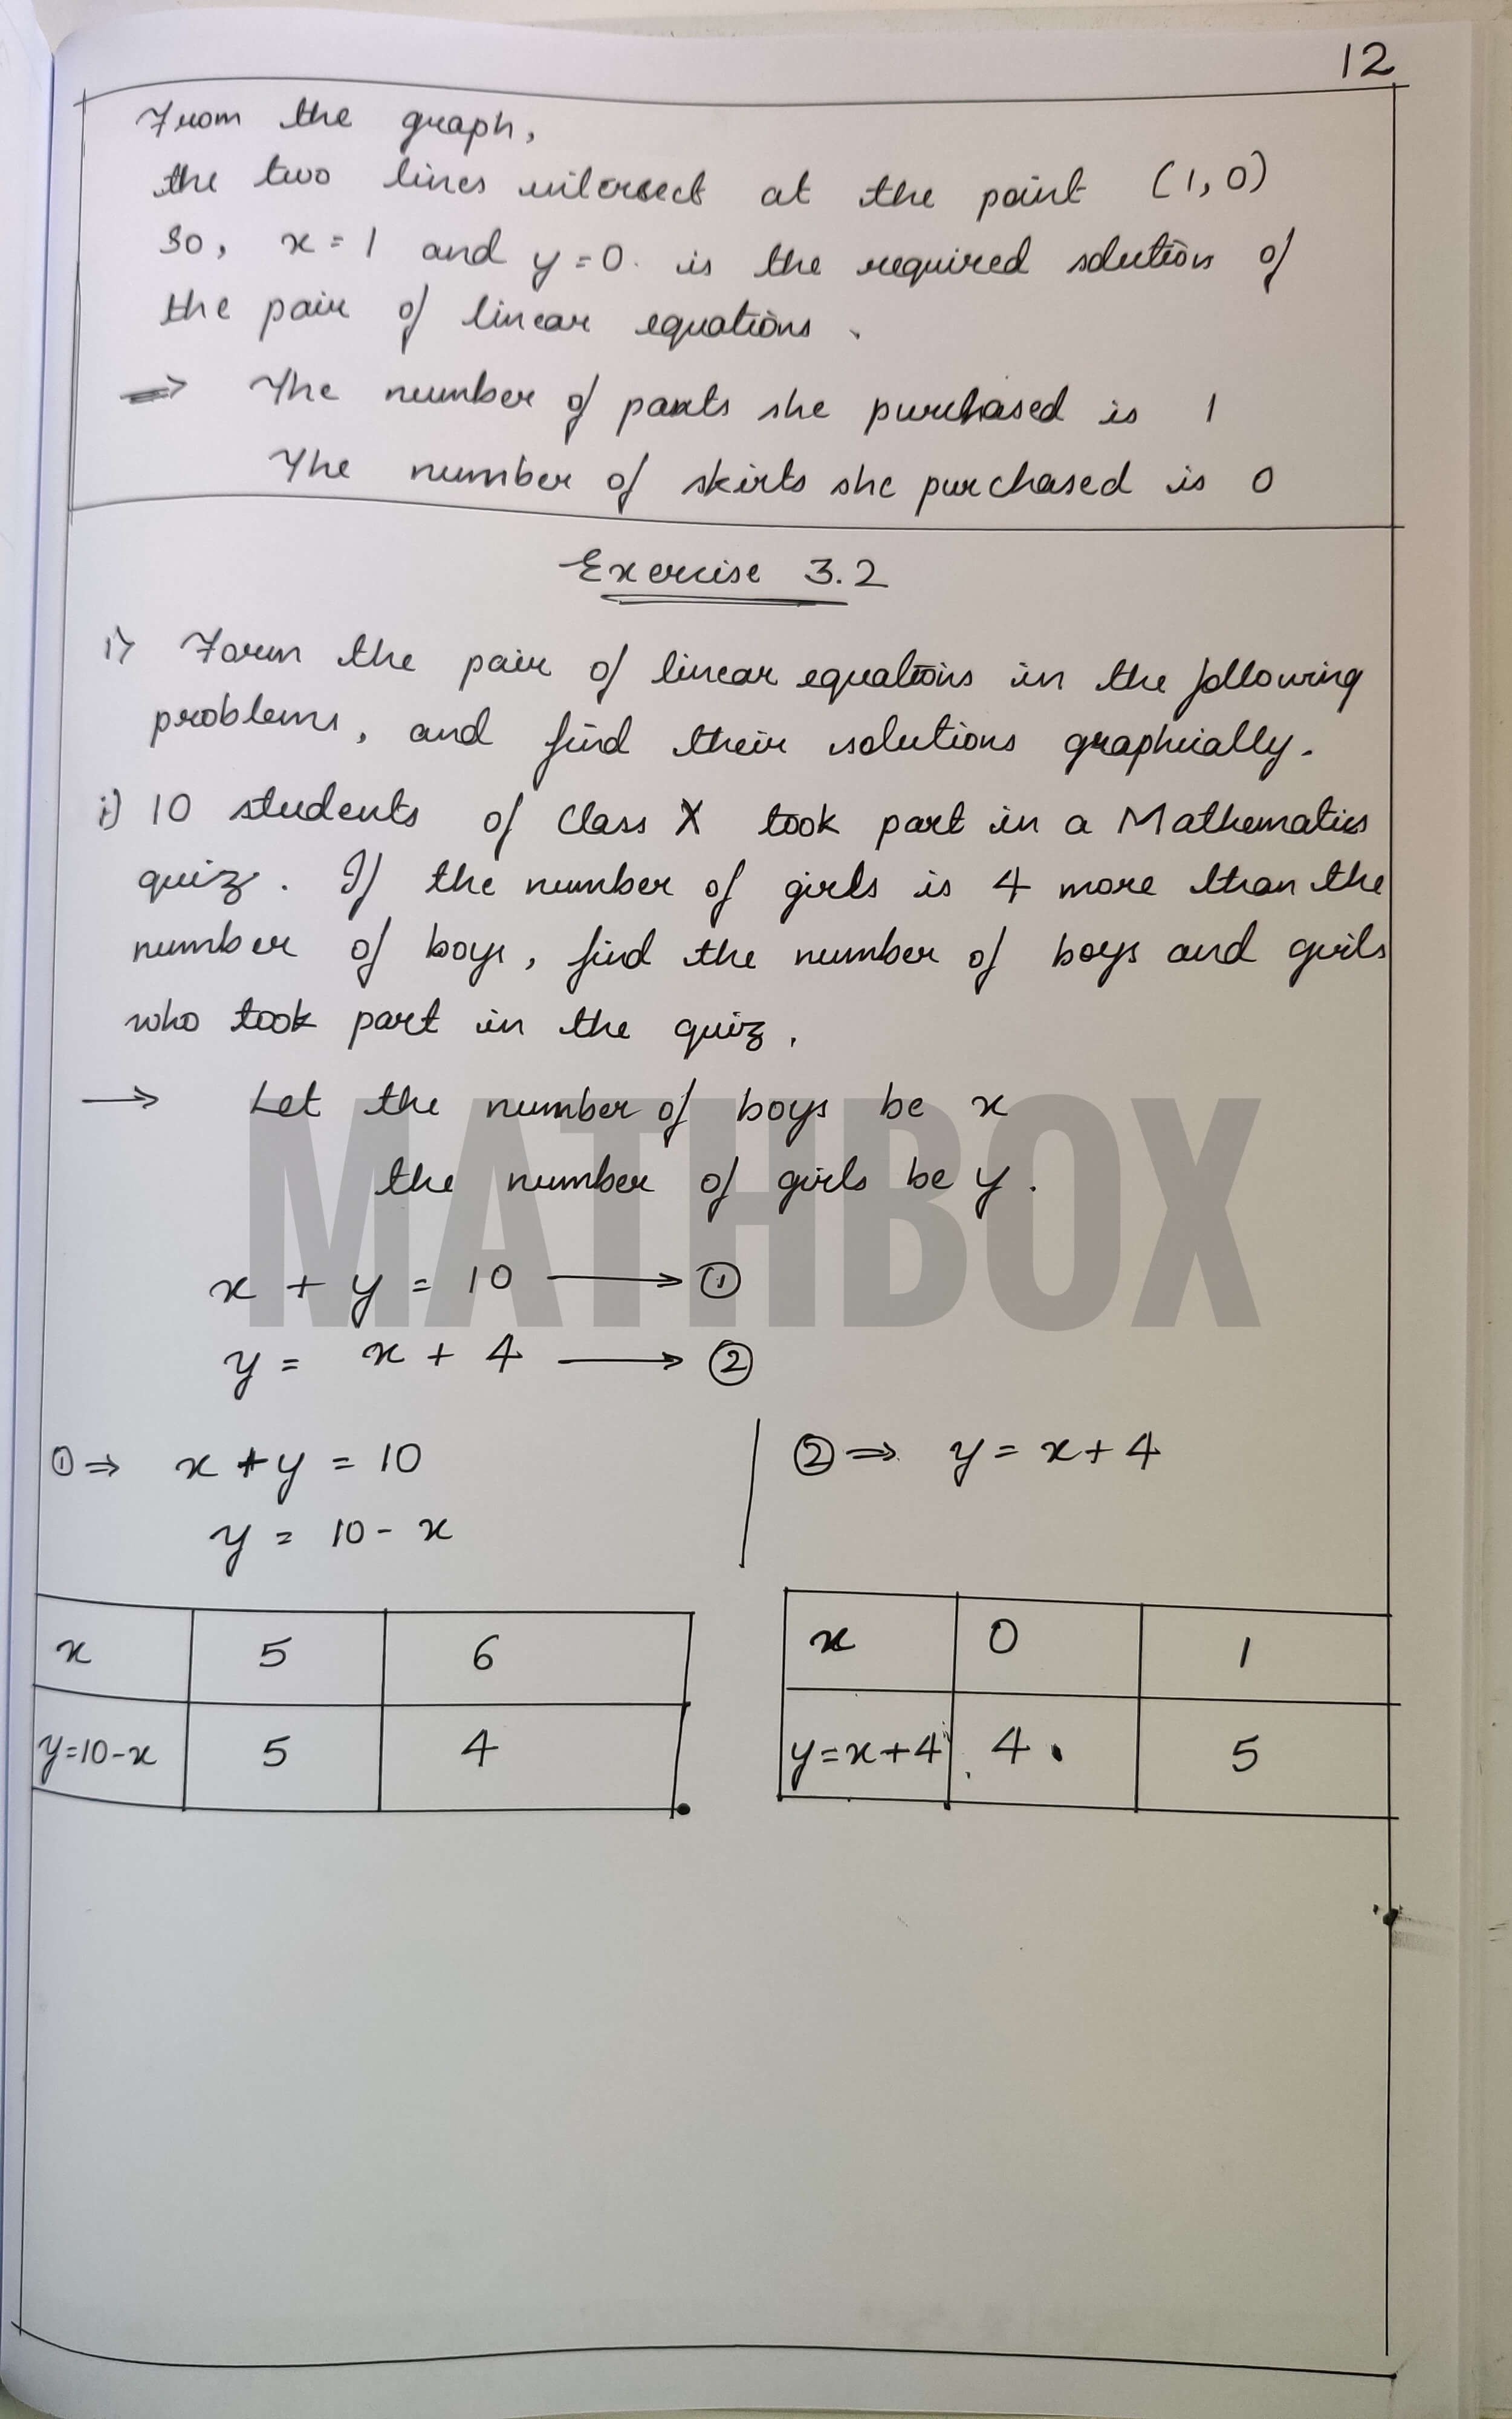 12
From the graph,
the two lines intersect at the point (1,0)
So, x = 1 and y = 0. is the required solution of
the pair of linear equations.
⇒ The number of pants she purchased is 1
The number of skirts she purchased is 0
Exercise 3.2
1) Form the pair of linear equations in the following
problems, and find their solutions graphically.
i) 10 students of Class X took part in a Mathematics
quiz. If the number of girls is 4 more than the
number of boys, find the number of boys and girls
who took part in the quiz.
→ Let the number of boys be x
the number of girls be y.
MATHBOX
x + y = 10 → ①
y = x + 4 → ②
① ⇒ x + y = 10
y = 10 - x
② ⇒ y = x + 4
x 5 6
y=10-x 5 4
x 0 1
y=x+4 4 5